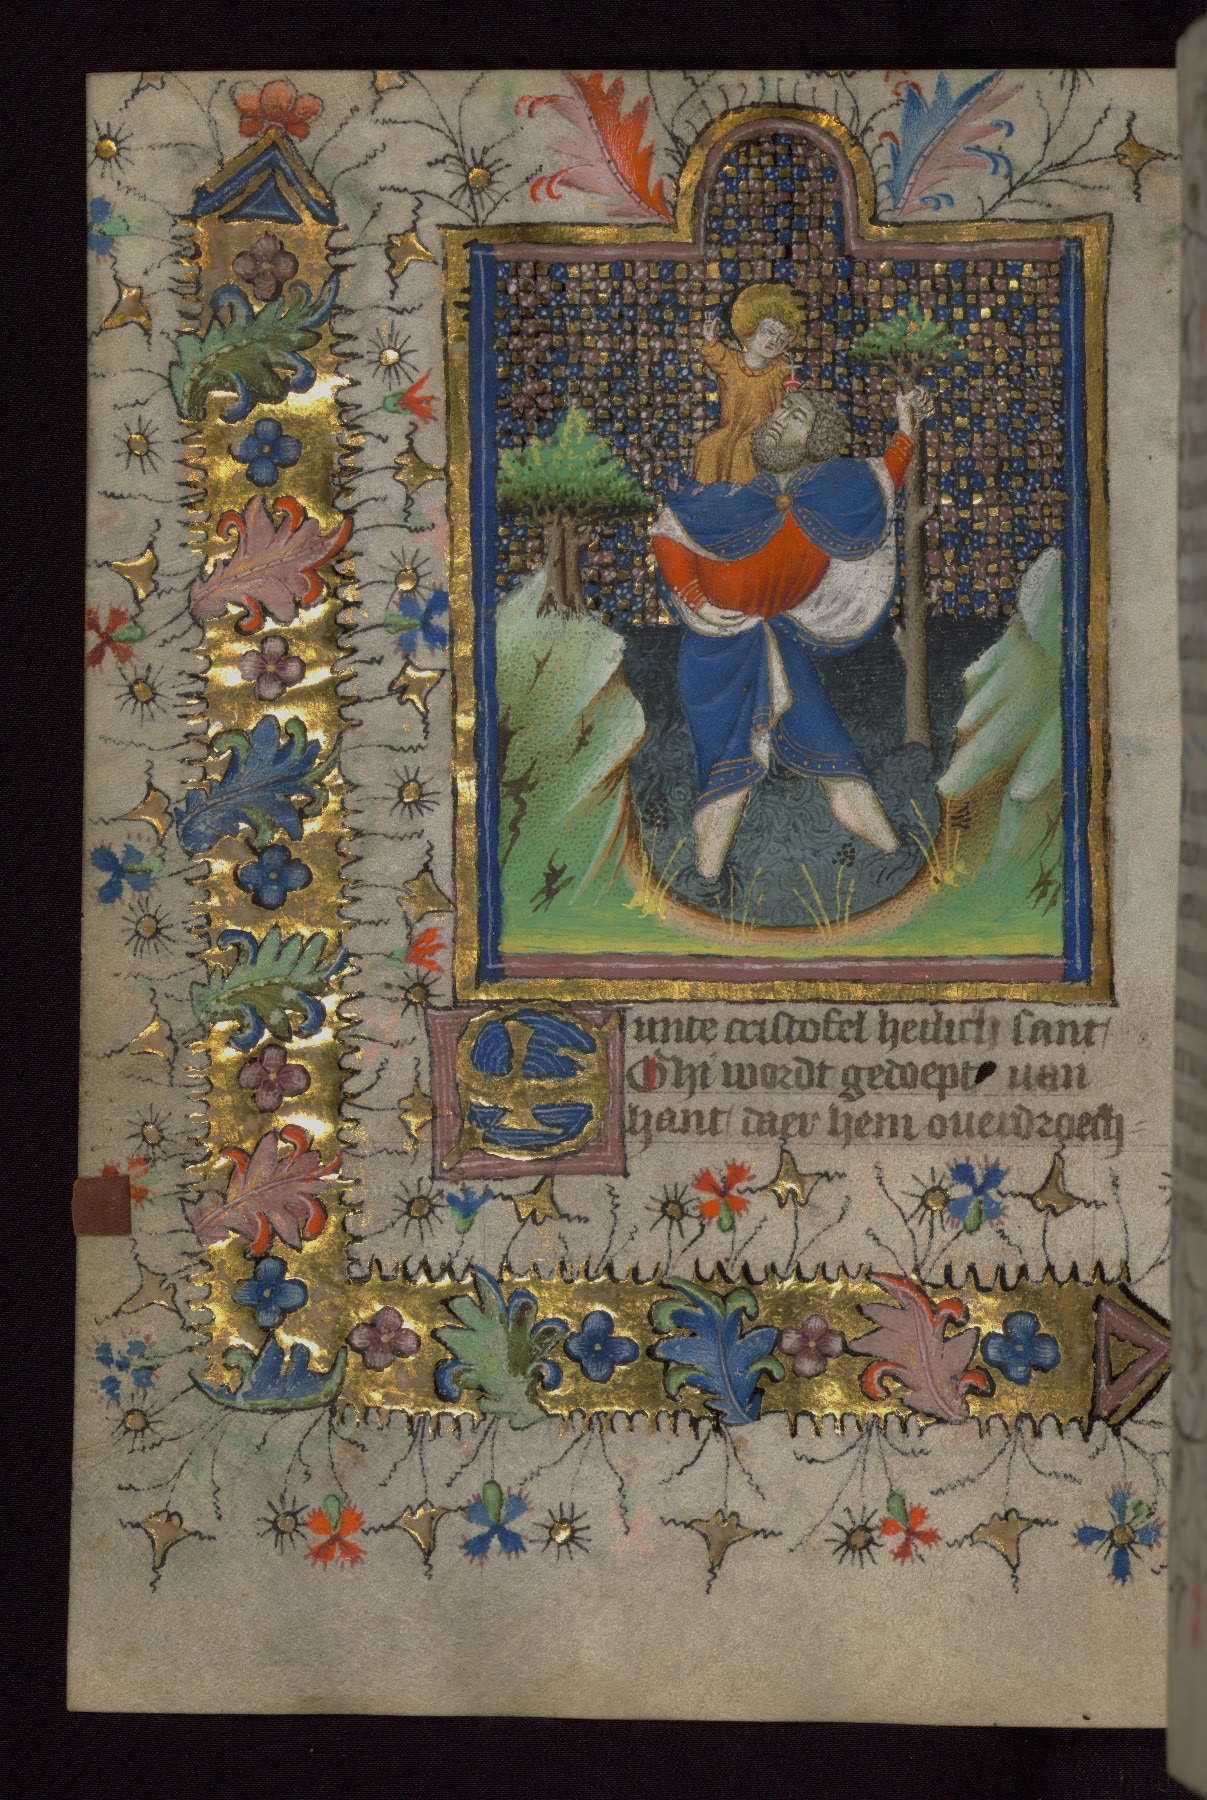 Sunte cristofel heilich sant
Ghi wordt gedoept van
hant daer hem ouerdroech